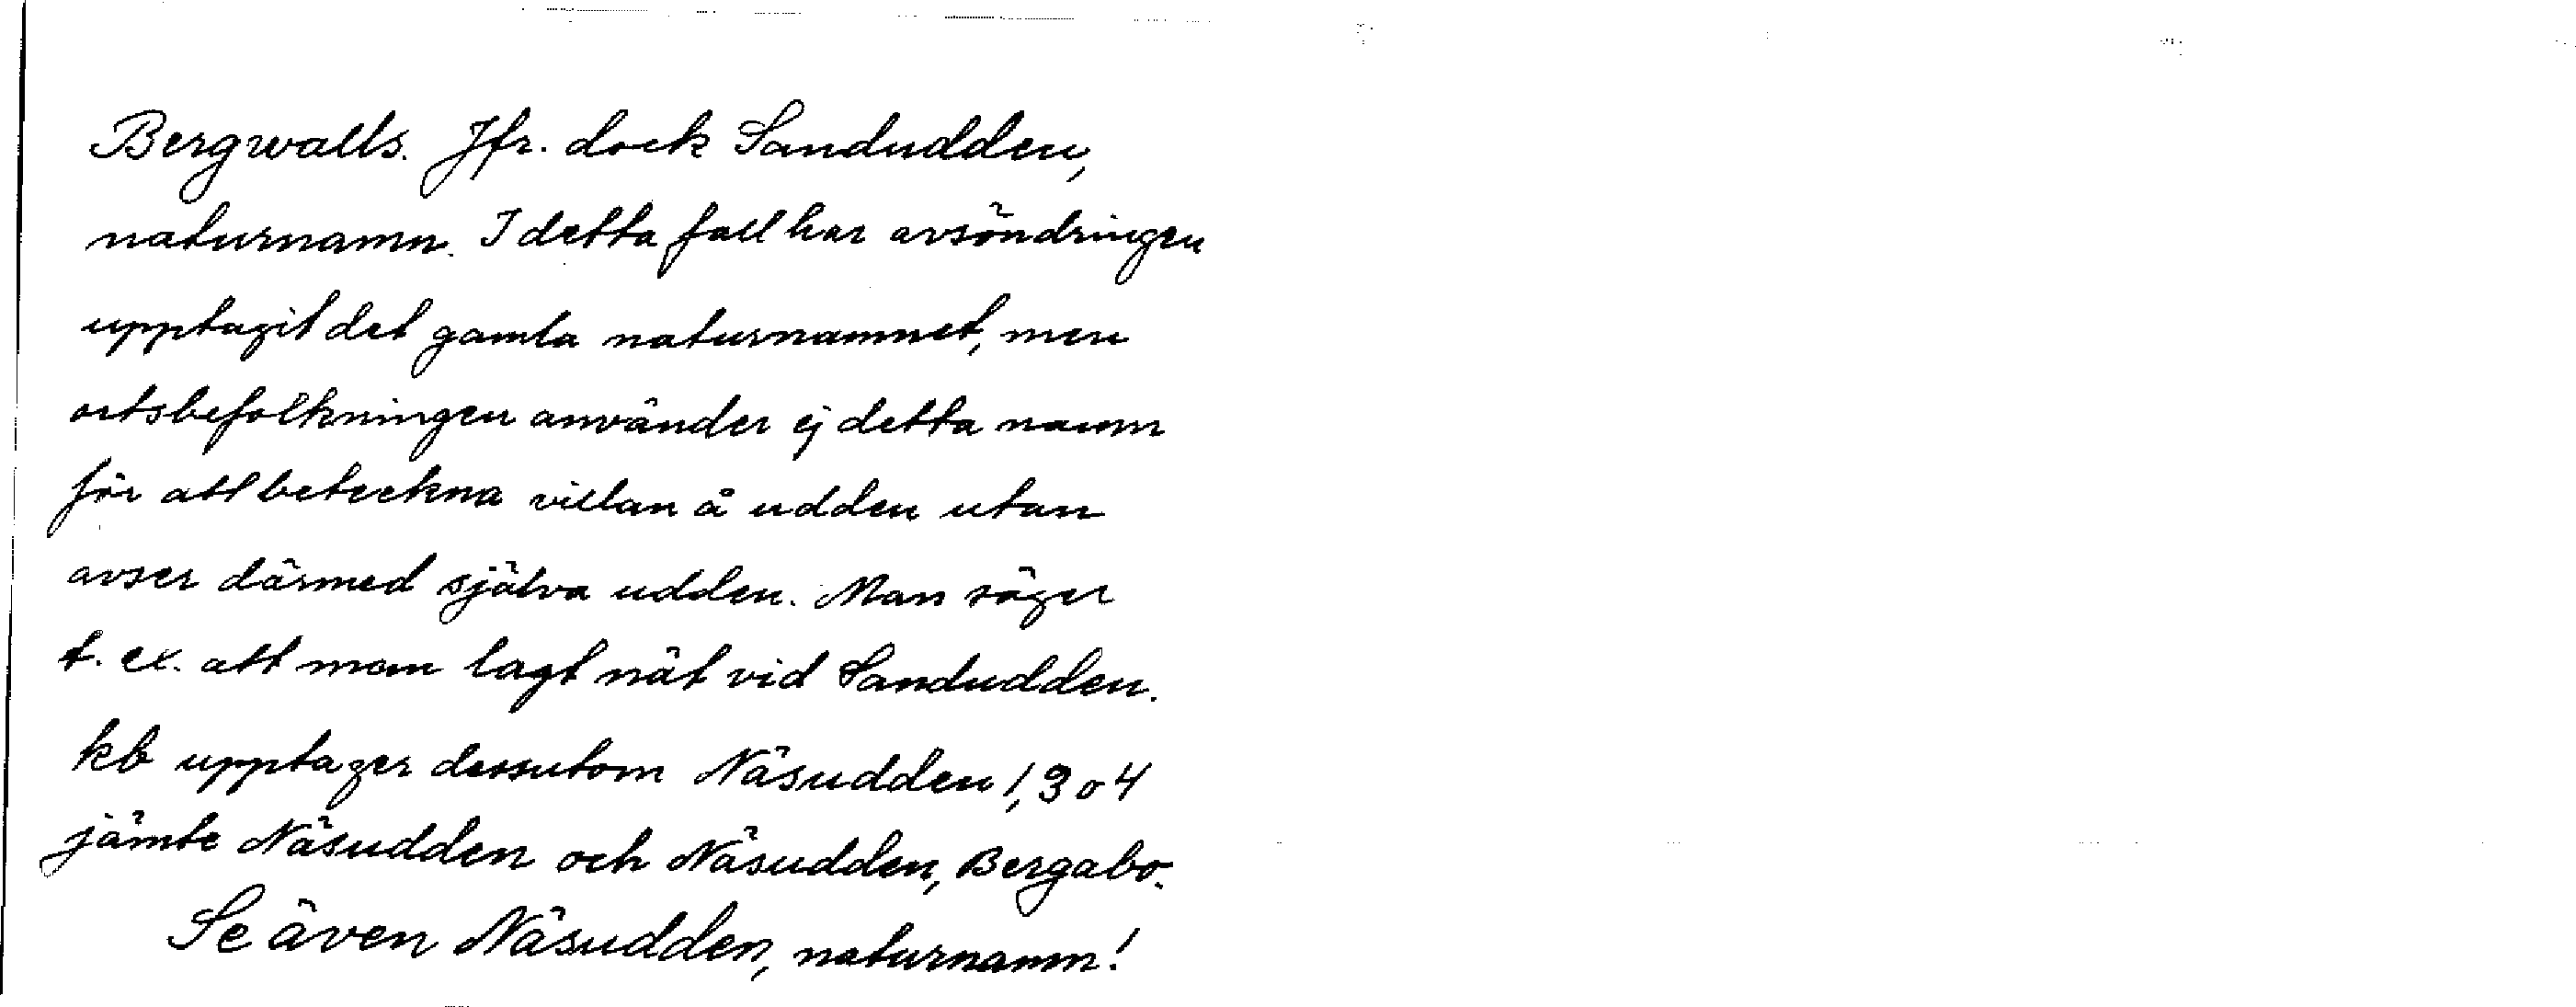 Bergwalls. Jfr. dock Sandudden,
naturnamn. I detta fall har avsöndringen
upptagit det gamla naturnamnet, men
ortsbefolkningen använder ej detta namn
för att beteckna villan å udden utan
avser därmed själva udden. Man säger
t. ex. att man lagt nät vid Sandudden.
kb upptager dessutom Näsudden 1,3 o 4
jämte Näsudden och Näsudden, Bergabo.
Se även Näsudden, naturnamn!